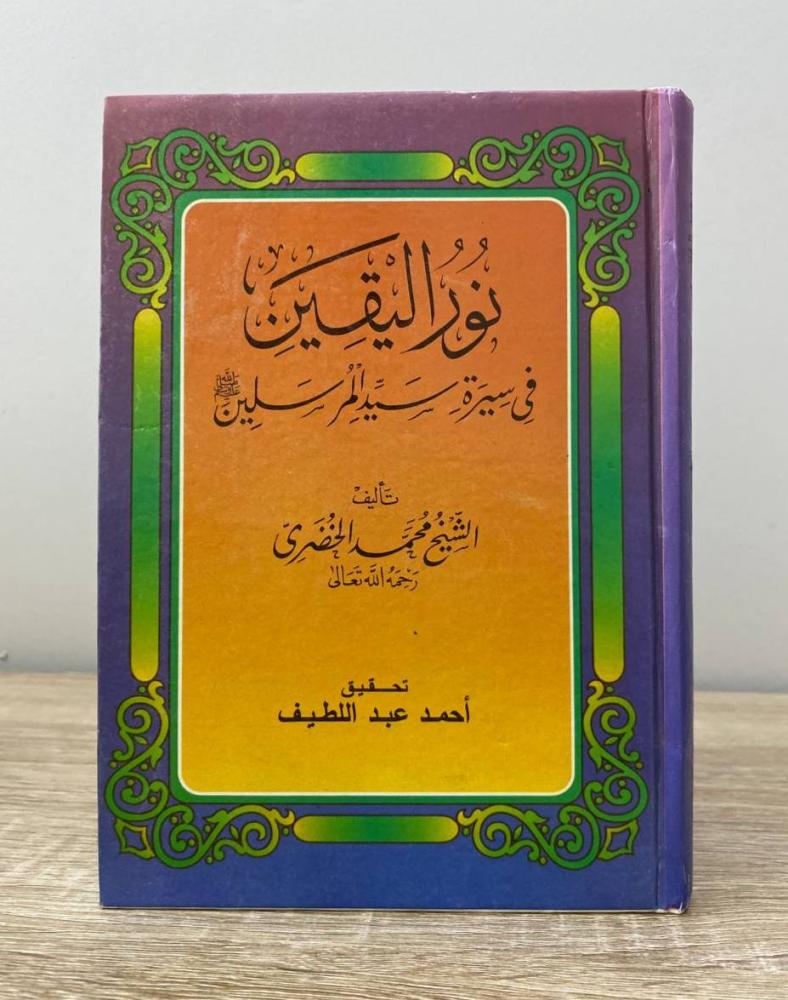 نُورُ الْيَقِينِ
فِي سِيرَةِ سَيِّدِ الْمُرْسَلِينَ ﷺ
تأليف
الشَّيْخُ مُحَمَّد الْخُضَرِيّ
رَحِمَهُ اللَّه تَعَالَى
تحقيق
أحمد عبد اللطيف